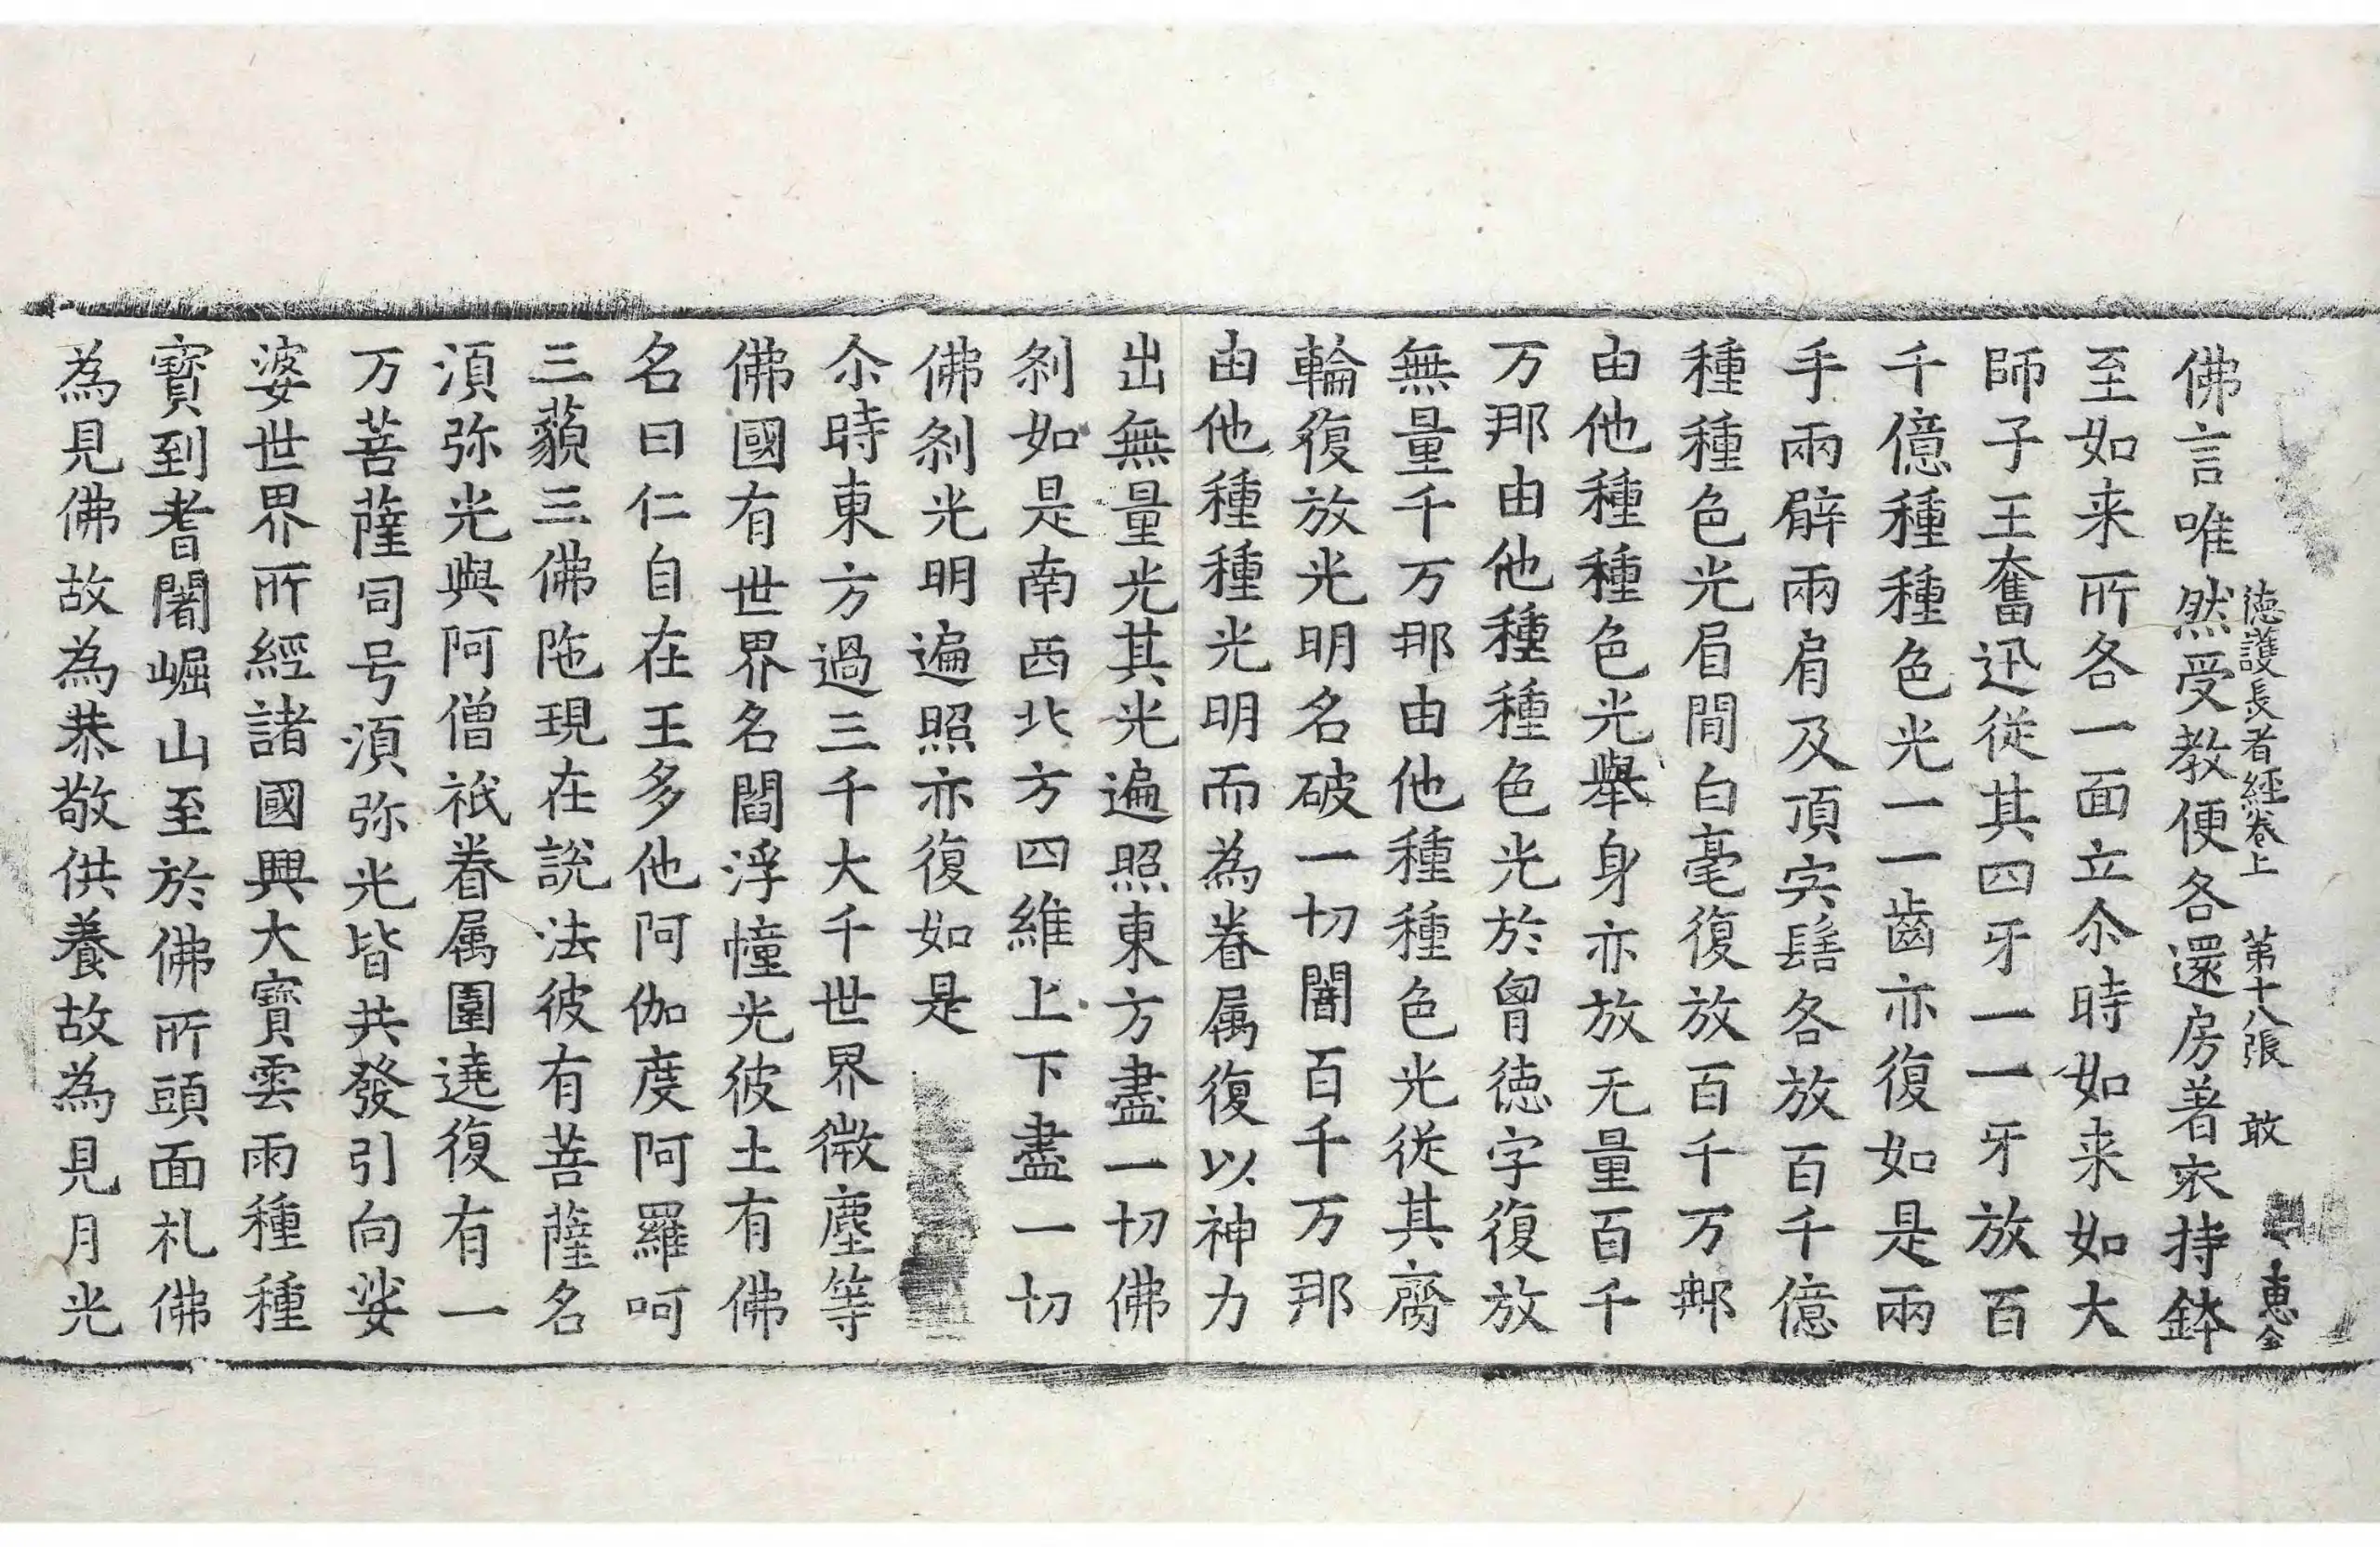 德護長者經卷上 第十八張 敢 惠金
佛言唯然受教便各還房著衣持鉢
至如来所各一面立尒時如来如大
師子王奮迅從其四牙一一牙放百
千億種種色光一一齒亦復如是兩
手兩臂兩肩及頂肉髻各放百千億
種種色光眉間白毫復放百千万那
由他種種色光舉身亦放无量百千
万那由他種種色光於胷德字復放
無量千万那由他種種色光從其齊
輪復放光明名破一切闇百千万那
由他種種光明而為眷属復以神力
出無量光其光遍照東方盡一切佛
剎如是南西北方四維上下盡一切
佛剎光明遍照亦復如是
尒時東方過三千大千世界微塵等
佛國有世界名閻浮幢光彼土有佛
名曰仁自在王多他阿伽度阿羅呵
三藐三佛陁現在說法彼有菩薩名
湏弥光與阿僧祇眷属圍遶復有一
万菩薩同号湏弥光皆共發引向娑
婆世界所經諸國興大寶雲雨種種
寶到耆闍崛山至於佛所頭面礼佛
為見佛故為恭敬供養故為見月光